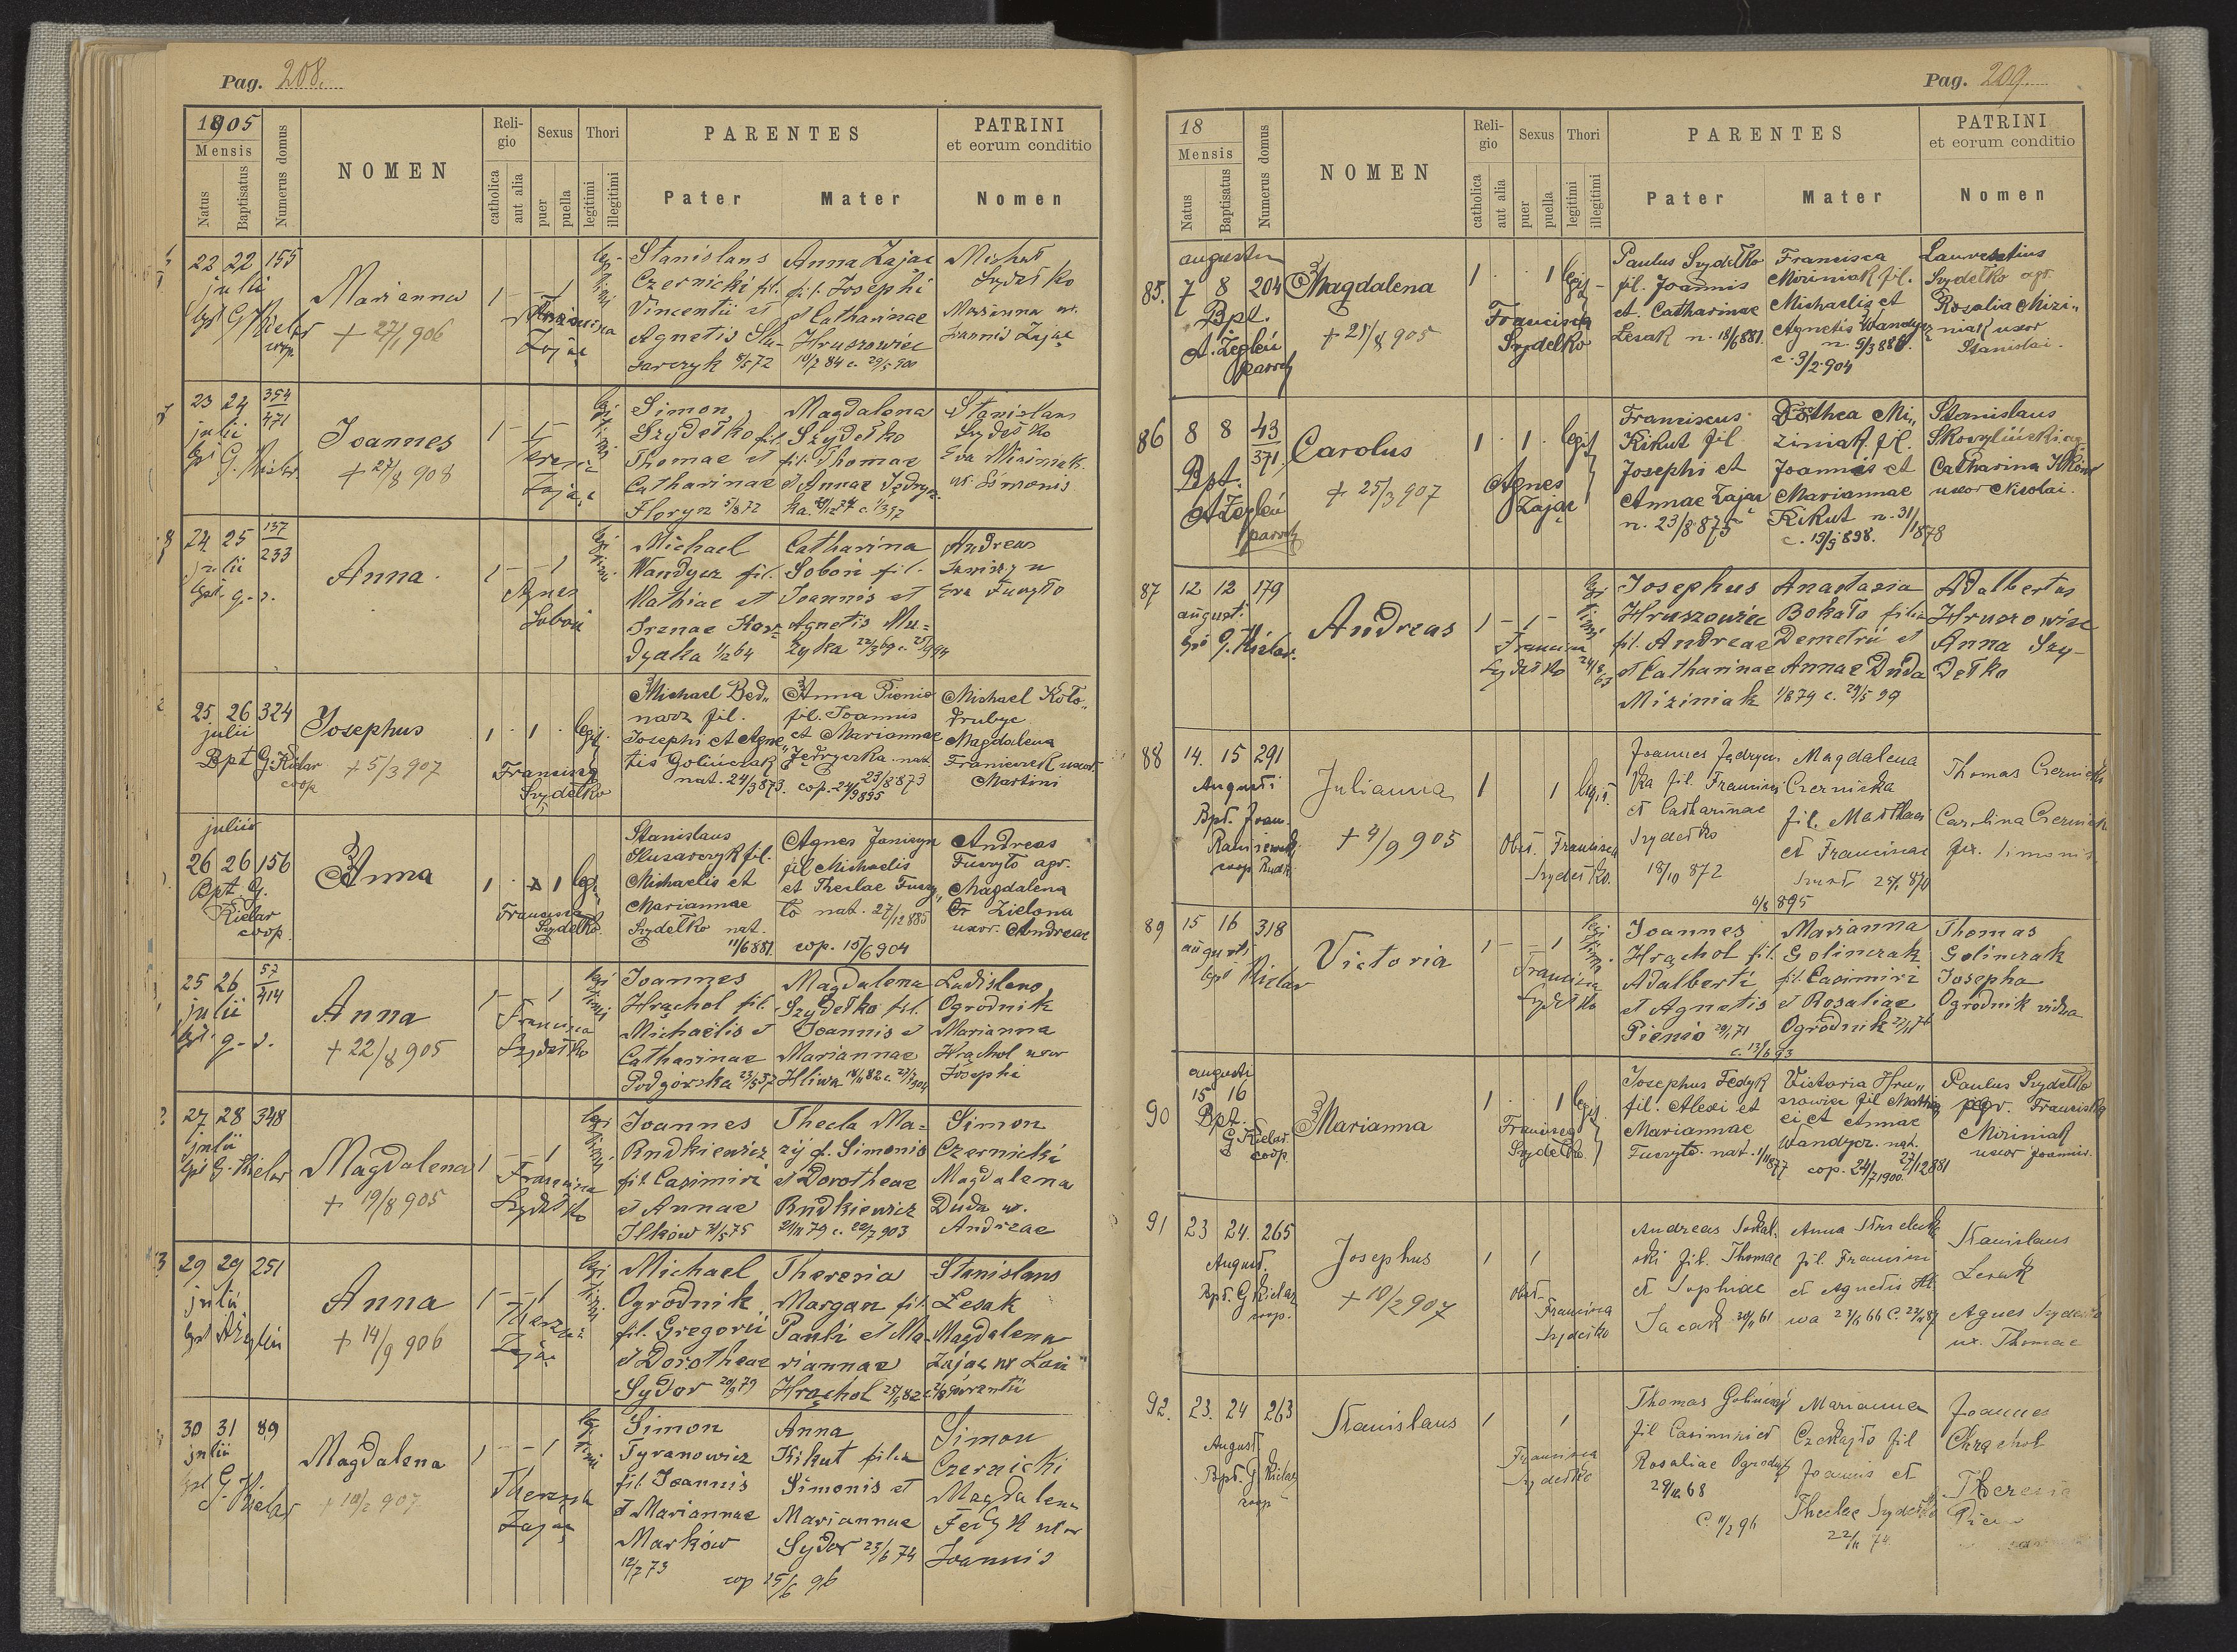 Pag. 208.
1905
Mensis
Natus
Baptisatus
Numerus domus
NOMEN
Reli-
gio
catholica
aut alia
Sexus
puer
puella
Thori
legitimi
illegitimi
PARENTES
Pater
Mater
PATRINI
et eorum conditio
Nomen
22 22 155
julii
Marianna
+ 27/1 906
1 - - 1
Zając
Stanislaus
Czernicki fil.
Vincentii et
Agnetis Ślu-
sarczyk 8/5 72
Anna Zając
fil. Josephi
et Catharinae
Hruszowiec
10/7 84 c. 29/5 900
Michael
Szydełko
Marianna ux.
Joannis Zając
23 24 354
471
julii
Joannes
+ 27/8 908
1 - 1 -
Zając
Simon
Szydełko fil.
Thomae et
Catharinae
Floryn 5/8 72
Magdalena
Szydełko
fil. Thomae
et Annae Jędryz-
ka
Stanislaus
Szydełko
Eva Miziniak
ux. Simonis
24 25 137
233
julii
Anna
1 - - 1
Agnes
Soboń
Michael
Wandycz fil.
Mathiae et
Irenae Haw-
dyaka 1/2 64
Catharina
Soboń fil.
Joannis et
Agnetis Mu-
zyka
Andreas
Eva Fuszyło
25 26 324
julii
Bpt G. Kielar
coop.
Josephus
+ 5/3 907
1 . 1 . legit.
Francisca
Szydełko
Michael Bed-
narz fil.
Josephi et Agne-
tis Golinczak
nat. 24/3 873.
Anna Pienio
fil. Joannis
et Mariannae
Jędryczka nat.
23/2 873
cop. 24/9 895
Michael Koło-
drubyc
Magdalena
Franiczek uxor
Martini
julii
26 26 156
Bpt. G.
Kielar
coop.
Anna
Francisca
Szydełko
Stanislaus
Ślusarczyk fil.
Michaelis et
Mariannae
Szydełko nat.
11/6 881.
Agnes Janiszyn
fil Michaelis
et Theclae Fuszy-
ło nat. 27/12 885
cop. 15/6 904
Andreas
Fuszyło agr.
Magdalena
Zielona
uxor. Andreae
25 26 57
414
julii
Anna
+ 22/8 905
Francisca
Szydełko
Joannes
Hrachol fil.
Michaelis et
Catharinae
Podgórska
Magdalena
Szydełko fil.
Joannis et
Mariannae
Hliwa 18/11 82 c.
Ladislaus
Ogrodnik
Marianna
Hrachol uxor
Josephi
27 28 348
julii
Magdalena
+ 19/8 905
Francisca
Szydełko
Joannes
Rudkiewicz
fil. Casimiri
et Annae
Ilków 31/5 75
Thecla Ma-
zij f. Simonis
et Dorotheae
Rudkiewicz
21/11 79 c. 22/7 903
Simon
Czernicki
Magdalena
Duda ux.
Andreae
29 29 251
julii
Anna
+ 14/9 906
Zając
Michael
Ogrodnik
fil. Gregorii
et Dorotheae
Sydor 20/9 79
Theresia
Margan fil.
Pauli et Ma-
riannae
Hrachol
Stanislaus
Lesak
Magdalena
Zając ux Lau-
rentii
30 31 89
julii
Magdalena
+ 10/2 907
Theresia
Zając
Simon
Tyranowicz
fil. Joannis
et Mariannae
Marków
12/7 73
Anna
Kikut filia
Simonis et
Mariannae
Sydor 25/6 74
cop 15/6 96
Simon
Czernicki
Magdalena
Fedyk uxor
Joannis
Pag. 209
18
Mensis
Natus
Baptisatus
Numerus domus
NOMEN
Reli-
gio
catholica
aut alia
Sexus
puer
puella
Thori
legitimi
illegitimi
PARENTES
Pater
Mater
PATRINI
et eorum conditio
Nomen
augusti
85. 7 8 204
Bpt.
A. Żegleń
paroch
Magdalena
+ 25/8 905
1 . . 1 legit
Francisca
Szydełko
Paulus Szydełko
fil. Joannis
et Catharinae
Lesak n. 18/6 881.
Francisca
Miziniak fil.
Michaelis et
Agnetis Wandycz
c. 9/2 904
Laurentius
Szydełko agr.
Rosalia Mizi-
niak uxor
Stanislai.
86 8 8 43
371
Bpt.
A Żegleń
paroch
Carolus
+ 25/3 907
1 . 1 . legit
Agnes
Zając
Franciscus
Kikut fil.
Josephi et
Annae Zając
n. 23/8 875
Dorothea Mi-
ziniak fil.
Joannis et
Mariannae
Kikut n. 31/1 1878
Stanislaus
Catharina
uxor Nicolai.
87 12 12 179
augusti
Andreas
1 - 1 -
Francisca
Szydełko
Josephus
Hruszowiec
fil. Andreae
et Catharinae
Miziniak
Anastasia
Bokało filia
Demetrii et
Annae Duda
1/8 79 c. 29/5 99
Adalbertus
Hruszowiec
Anna Szy-
dełko
88 14. 15 291
Augusti
Bpt. Joan.
Julianna
+ 4/9 905
1 1 legit.
Obst. Francisca
Szydełko.
Joannes Jędrycz-
ka fil. Francisci
et Catharinae
Szydełko
18/10 872
Magdalena
Czernicka
fil. Matthaei
et Franciscae
Thomas Czernicki
Carolina Czernicka
ux. Simonis
89 15 16 318
augusti
Victoria
1 - - 1
Francisca
Szydełko
Joannes
Hrąchol fil.
Adalberti
et Agnetis
Pienio 29/1 71
Marianna
Golinczak
fil. Casimiri
et Rosaliae
Ogrodnik
Thomas
Golinczak
Josepha
Ogrodnik vidua
augusti
15 16
90 Bpt.
G Kielar
coop.
Marianna
1 . . 1 legit.
Francisca
Szydełko
Josephus Fedyk
fil. Alexi et
Mariannae
Fuszyło nat. 1/11 877
Victoria Hru-
szowiec fil Matth
ei et Annae
Wandycz nat.
27/12 881
cop. 24/7 1900.
Paulus Szydełko
agr. Francisca
Miziniak
uxor Joannis.
91 23 24. 265
August.
Bpt. G Kielar
coop.
Josephus
+ 10/2 907
1 1
Obst.
Francisca
Szydełko
Andreas
ski fil. Thomae
et Sophiae
Anna
fil. Francisci
et Agnetis
Stanislaus
Lesak
Agnes Szydełko
ux. Thomae
92. 23. 24 263
August
Bpt. G Kielar
coop
Stanislaus
1 1
Francisca
Szydełko
Thomas Golinczak
fil Casimiri et
Rosaliae Ogrodnik
29/12 68
C. 11/2 96
Marianna
fil
Joannis et
Theclae Szydełko
22/11 74
Joannes
Chrąchol
Theresia